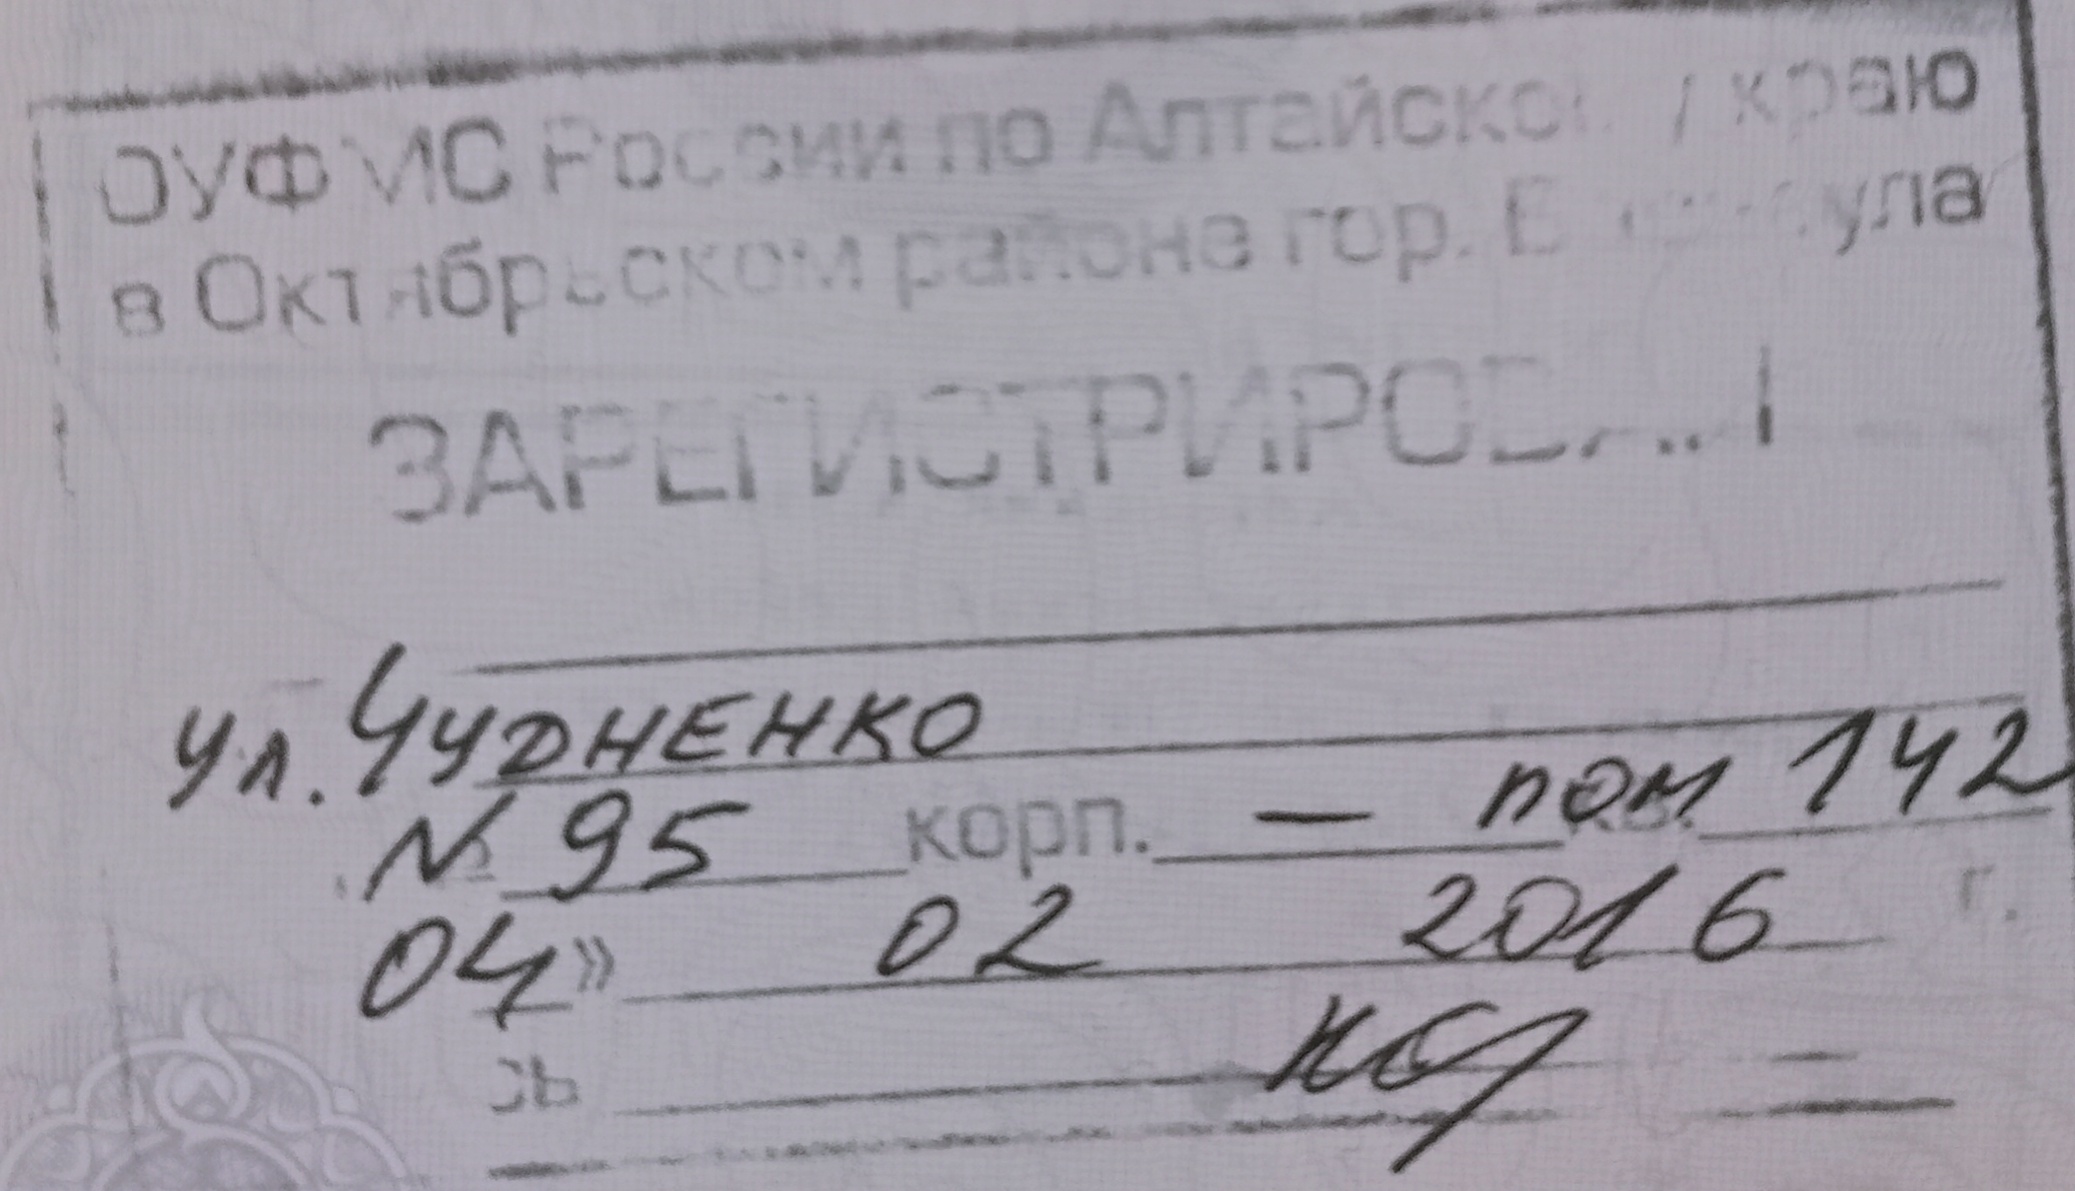 ОУФМС России по Алтайскому краю
в Октябрьском районе гор. Барнаула
ЗАРЕГИСТРИРОВАН
ул. ЧУДНЕНКО
№ 95 корп. — пом 142
04» 02 2016 г.